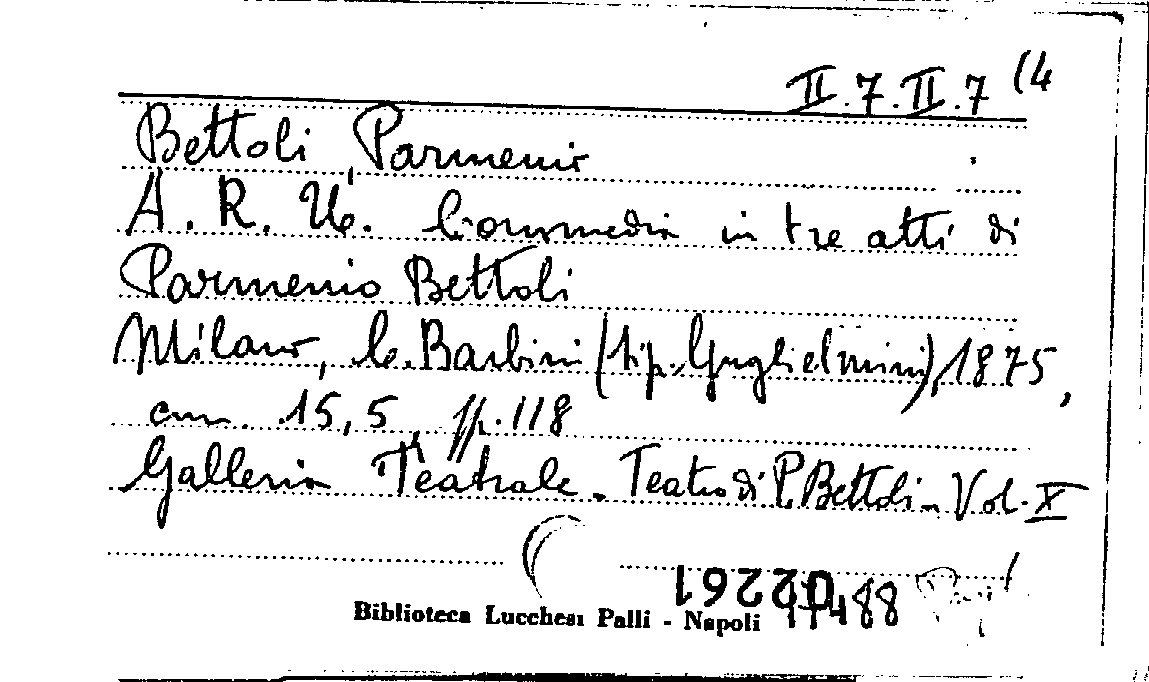 II.7.II.7 (4
Bettoli, Parmenio
A. R. Ve. Commedia in tre atti di
Parmenio Bettoli
Milano, C. Barbini (tip. Guglielmini), 1875,
cm. 15,5, pp. 118
Galleria Teatrale. Teatro di P. Bettoli - Vol. X
Biblioteca Lucchesi Palli - Napoli